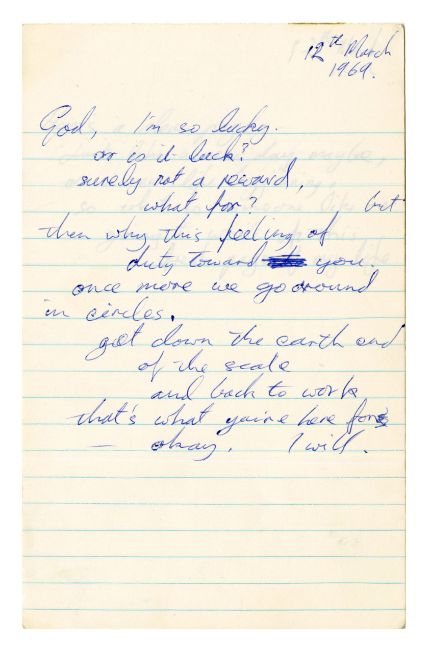 12th March
1969.
God, I'm so lucky.
or is it luck?
surely not a reward,
what for? but
then why this feeling of
duty toward you.
once more we go around
in circles.
get down the earth end
of the scale
and back to work
that's what you're here for
— okay. I will.